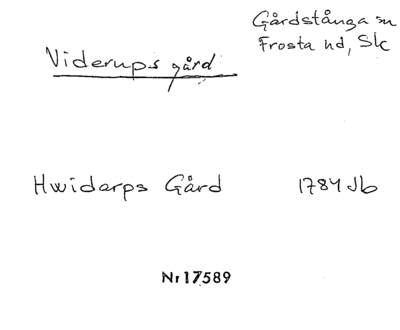 Gårdstånga sn
Frosta hd, Sk
Viderups gård
Hwidarps Gård 1784 Jb
Nr 17589